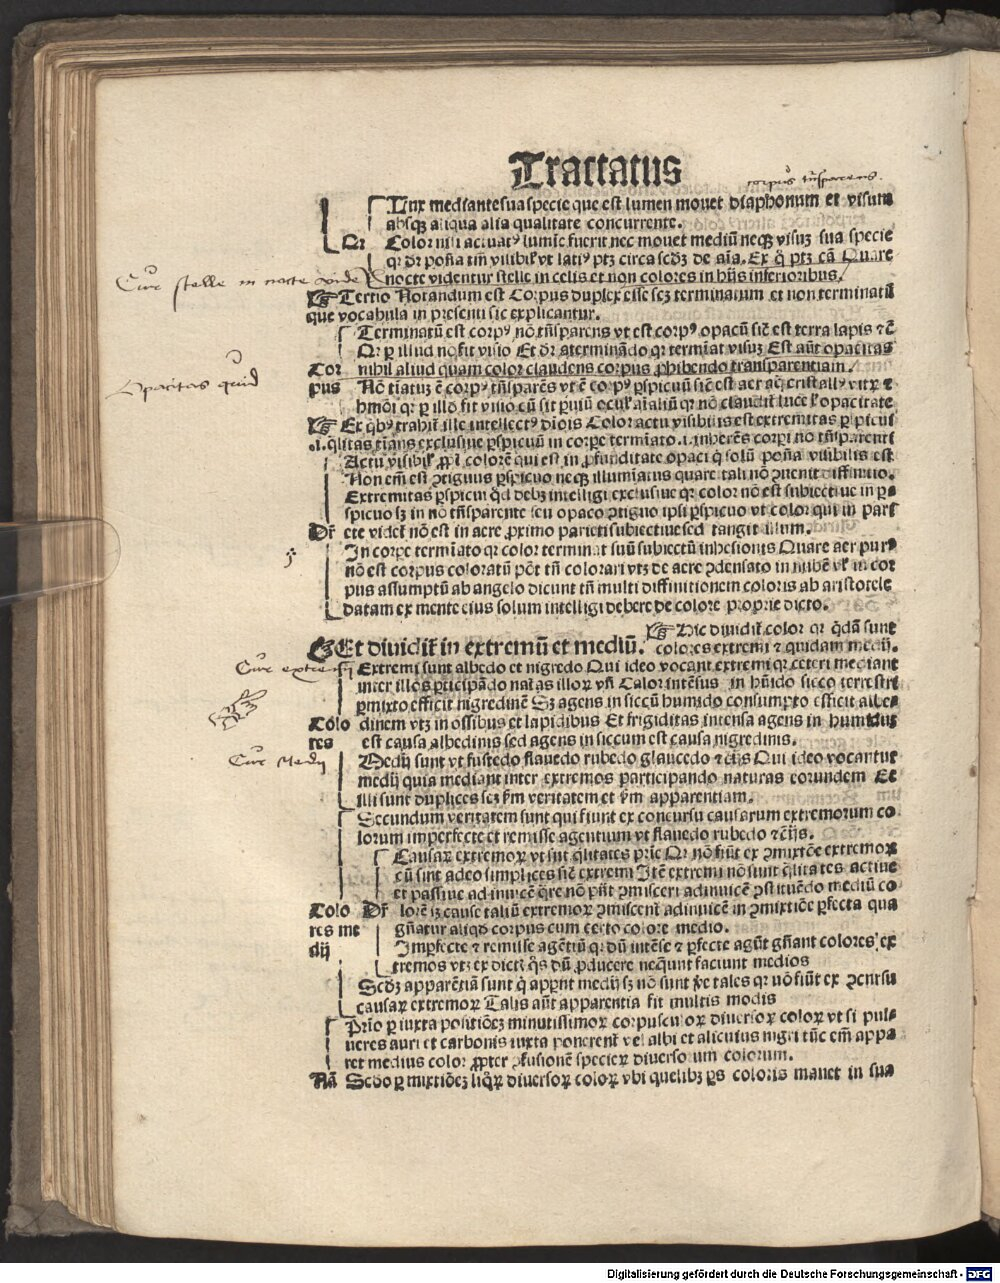 Tractatus
corpus trāsparens.
Lux mediante sua specie que est lumen mouet diaphonum et visum
absqꝫ aliqua alia qualitate concurrente.
Qꝛ Color nisi actuatꝰ lumīe fuerit nec mouet mediū neqꝫ visuꝫ sua specie
qꝛ dꝛ poña tm̄ visibilꝭ vt latiꝰ ptꝫ circa scd̄ꝫ de aīa. Ex q̊ ptꝫ cā Quare
Cur stelle in nocte vide
nocte videntur stelle in celis et non colores in hijs inferioribus.
☞ Tertio Notandum est Corpus duplex esse scꝫ terminatum et non terminatū
que vocabula in presenti sic explicantur.
Terminatū est corpꝰ nō trāsparens vt est corpꝰ opacū sic̄ est terra lapis ⁊c̄
Qꝛ ꝑ illud nō fit visio Et dꝛ a terminādo qꝛ termīat visuꝫ Est aūt opacitas
Cor nihil aliud quam color claudens corpus ꝓhibendo transparentiam.
Opacitas quid
pus Nō tīatuꝫ ē corpꝰ trāsparēs vt ē corpꝰ ꝑspicuū sic̄ est aer aq̄ cristallꝰ vitꝝ ⁊
hmōi qꝛ ꝑ illō fit visio cū sit ꝑuiū oculꝭ aīaliū qꝛ nō claudit̄ luce ꝭ opacitate
☞ Ex qͥbꝰ trahit̄ ille intellectꝰ dictōis Color actu visibilis est extremitas ꝑspicui
.i. q̄litas tīans exclusiue ꝑspicuū in corꝑe termīato .i. inherēs corꝑi nō trāsparenti
Actū visibilꝭ ꝓpt̄ colorē qui est in ꝓfunditate opaci q̄ solū poña visibilis est
Non em̄ est ꝯtiguus ꝑspicuo neqꝫ illumīatus quare tali nō ꝯuenit diffinitio.
Extremitas ꝑspicui qd̄ debꝫ intelligi exclusiue qꝛ color nō est subiectiue in ꝑ
spicuo sꝫ in nō trāsparente seu opaco ꝯtiguo ipsi ꝑspicuo vt color qui in pari
Dꝛ̄ ete videt̄ nō est in aere ꝓximo parieti subiectiue sed tangit illum.
In corꝑe termīato qꝛ color terminat suū subiectū inhesionis Quare aer purꝰ
nō est corpus coloratū pōt tn̄ colorari vtꝫ de aere ꝯdensato in nube vꝭ in cor
pus assumptū ab angelo dicunt tn̄ multi diffinitionem coloris ab aristotele
datam ex mente eius solum intelligi debere de colore proprie dicto.
Et diuidit̄ in extremū et mediū. ☞ Hic diuidit̄ color qꝛ q̄dā sunt
colores extremi ⁊ quidam medij.
Cur extremi
Extremi sunt albedo et nigredo Qui ideo vocant̄ extremi qꝛ ceteri mediant
inter illos ꝑticipādo natas illoꝝ vn̄ Calor intēsus in hūido sicco terrestri
ꝑmixto efficit nigredinē Sꝫ agens in siccū humido consumpto efficit albe
Colo dinem vtꝫ in ossibus et lapidibus Et frigiditas intensa agens in humidus
res est causa albedinis sed agens in siccum est causa nigredinis.
Cur Medij
Medij sunt vt fustedo flauedo rubedo glaucedo ⁊ c̄ijs Qui ideo vocantur
medij quia mediant inter extremos participando naturas eorundem Et
illi sunt duplices scꝫ ẜm veritatem et ẜm apparentiam.
Secundum veritatem sunt qui fiunt ex concursu causarum extremorum co
lorum imperfecte et remisse agentium vt flauedo rubedo ⁊c̄ijs.
Causaꝝ extremoꝝ vt sūt q̄litates prīe Qꝛ nō fiūt ex ꝯmixtōe extremoꝝ
cū sint adeo simplices sic̄ extremi Itē extremi nō sunt q̄litates actiue
et passiue ad inuicē q̄re nō pn̄t ꝯmisceri adinuicē ꝯstituēdo mediū co
Colo Dꝛ̄ lorē lꝫ cause taliū extremoꝝ ꝯmiscent̄ adinuicē in ꝯmixtiōe ꝑfecta qua
res me gn̄atur aliqd̄ corpus cum certo colore medio.
dij Imꝑfecte ⁊ remisse agētiū qꝛ dū intēse ⁊ ꝑfecte agūt gn̄ant colores ex
tremos vtꝫ ex dictꝭ qͥs dū ꝓducere neq̄unt faciunt medios
Scd̄ꝫ apparētiā sunt q̄ apꝑent medij sꝫ nō sunt ꝟe tales qꝛ nō fiūt ex ꝯcursu
causaꝝ extremoꝝ Talis aūt apparentia fit multis modis
Prīo ꝑ iuxta positiōeꝫ minutissimoꝝ corpusculoꝝ diuersoꝝ coloꝝ vt si pul
ueres auri et carbonis iuxta ponerent̄ vel albi et alicuius nigri tūc em̄ appa
ret medius color ꝓpter ꝯfusionē specieꝝ diuersorum colorum.
Nā Scd̄o ꝑ mixtiōeꝫ liq̄ꝝ diuersoꝝ coloꝝ vbi quelibꝫ ꝑs coloris manet in sua
Digitalisierung gefördert durch die Deutsche Forschungsgemeinschaft - DFG